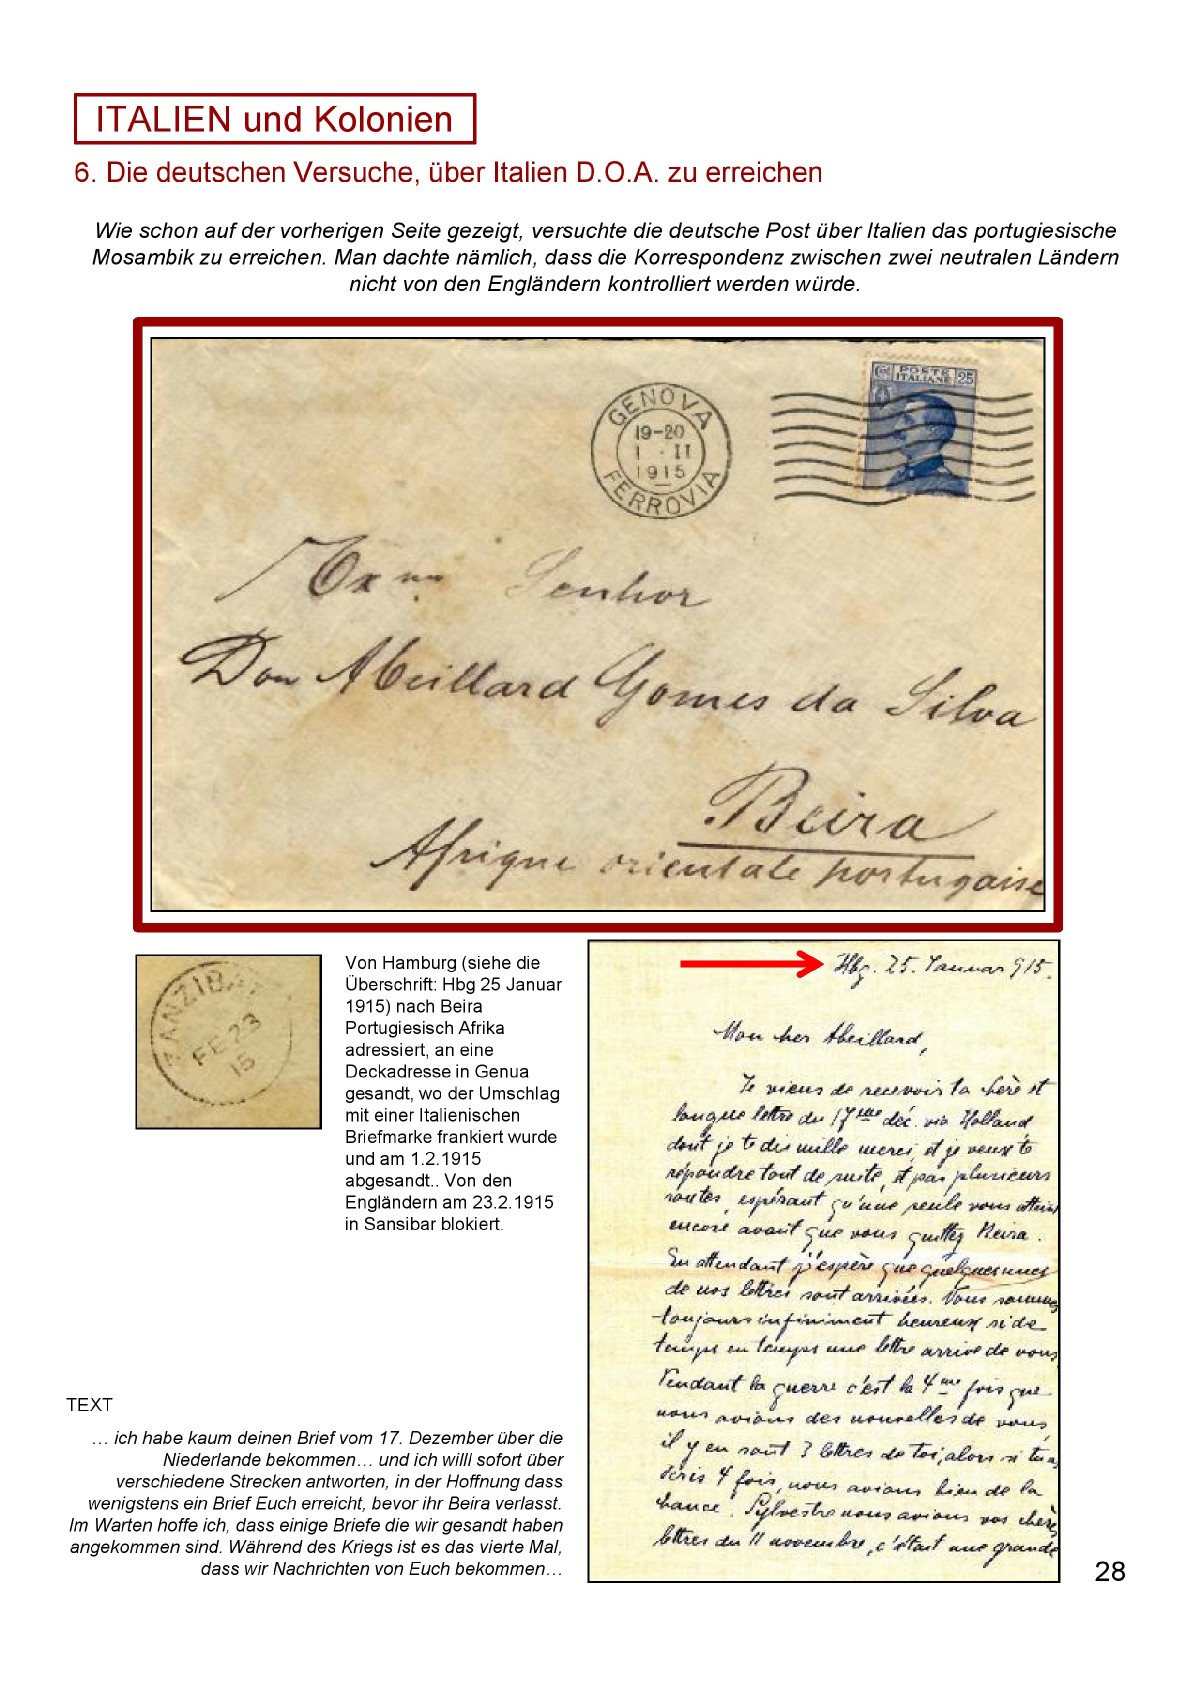 ITALIEN und Kolonien
6. Die deutschen Versuche, über Italien D.O.A. zu erreichen
Wie schon auf der vorherigen Seite gezeigt, versuchte die deutsche Post über Italien das portugiesische
Mosambik zu erreichen. Man dachte nämlich, dass die Korrespondenz zwischen zwei neutralen Ländern
nicht von den Engländern kontrolliert werden würde.
POSTE
ITALIANE 25
GENOVA
19-20
1 · II
1915
FERROVIA
Exmo Senhor
Don Abeillard Gomes da Silva
Beira
Afrique orientale portugaise
ZANZIBAR
FE 23
15
Von Hamburg (siehe die
Überschrift: Hbg 25 Januar
1915) nach Beira
Portugiesisch Afrika
adressiert, an eine
Deckadresse in Genua
gesandt, wo der Umschlag
mit einer Italienischen
Briefmarke frankiert wurde
und am 1.2.1915
abgesandt.. Von den
Engländern am 23.2.1915
in Sansibar blokiert.
Hbg. 25. Januar 915.
Mon cher Abeillard,
Je viens de recevoir ta chère et
longue lettre du 17ème déc. via Holland
dont je te dis mille merci, et je veux te
répondre tout de suite, et par plusieurs
routes, espérant qu'une seule vous atteint
encore avant que vous quittez Beira.
En attendant j'espère que quelques unes
de nos lettres sont arrivées. Nous sommes
toujours infiniment heureux si de
temps en temps une lettre arrive de vous.
Pendant la guerre c'est la 4me fois que
nous avions des nouvelles de vous,
il y en sont 3 lettres de toi, alors si tu as
écris 4 fois, nous avions bien de la
chance. Sylvestre nous avions vos chères
lettres du 11 novembre, c'était une grande
TEXT
… ich habe kaum deinen Brief vom 17. Dezember über die
Niederlande bekommen… und ich willl sofort über
verschiedene Strecken antworten, in der Hoffnung dass
wenigstens ein Brief Euch erreicht, bevor ihr Beira verlasst.
Im Warten hoffe ich, dass einige Briefe die wir gesandt haben
angekommen sind. Während des Kriegs ist es das vierte Mal,
dass wir Nachrichten von Euch bekommen…
28